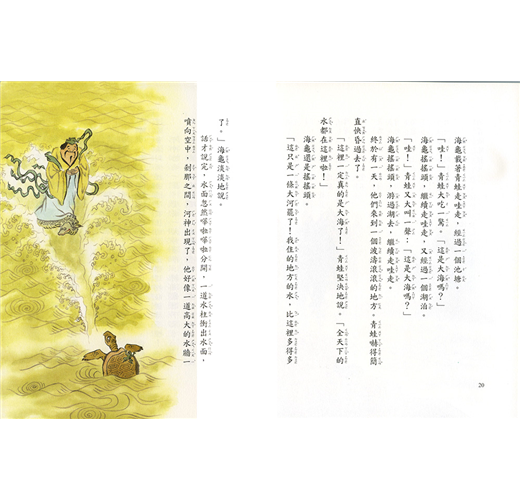 海龜載著青蛙走哇走,經過一個池塘。
「哇!」青蛙大吃一驚。「這是大海嗎?」
海龜搖搖頭,繼續走哇走,又經過一個湖泊。
「哇!」青蛙又大叫一聲:「這是大海嗎?」
海龜搖搖頭,游過湖去,繼續走哇走。
終於有一天,他們來到一個波濤滾滾的地方。青蛙赫得簡
直快昏過去了。
「這裡一定真的是大海了!」青蛙堅決地說。「全天下的
水都在這裡啦!」
海龜還是搖搖頭。
「這只是一條大河罷了!我住的地方的水,比這裡多得多
了。」海龜淡淡地說。
話才說完,水面忽然嘩啦嘩啦分開,一道水柱衝出水面,
噴向空中,剎那之間,河神出現了,他好像一道高大的水牆一
20